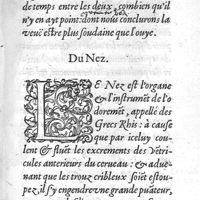 de temps entre les deux, combien qu'il
n'y en ayt point: dont nous conclurons la
veuë estre plus soudaine que l'ouye.
Du Nez.
LE Nez est l'organe
& l'instrumẽt de l'o
doremẽt, appellé des
Grecs Rhis: à cause
que par iceluy cou
lent & fluẽt les excrements des vẽtri
cules anterieurs du cerueau: & adue-
nant que les trouz cribleux soiẽt estou-
pez, il s'y engendre vne grande puãteur,